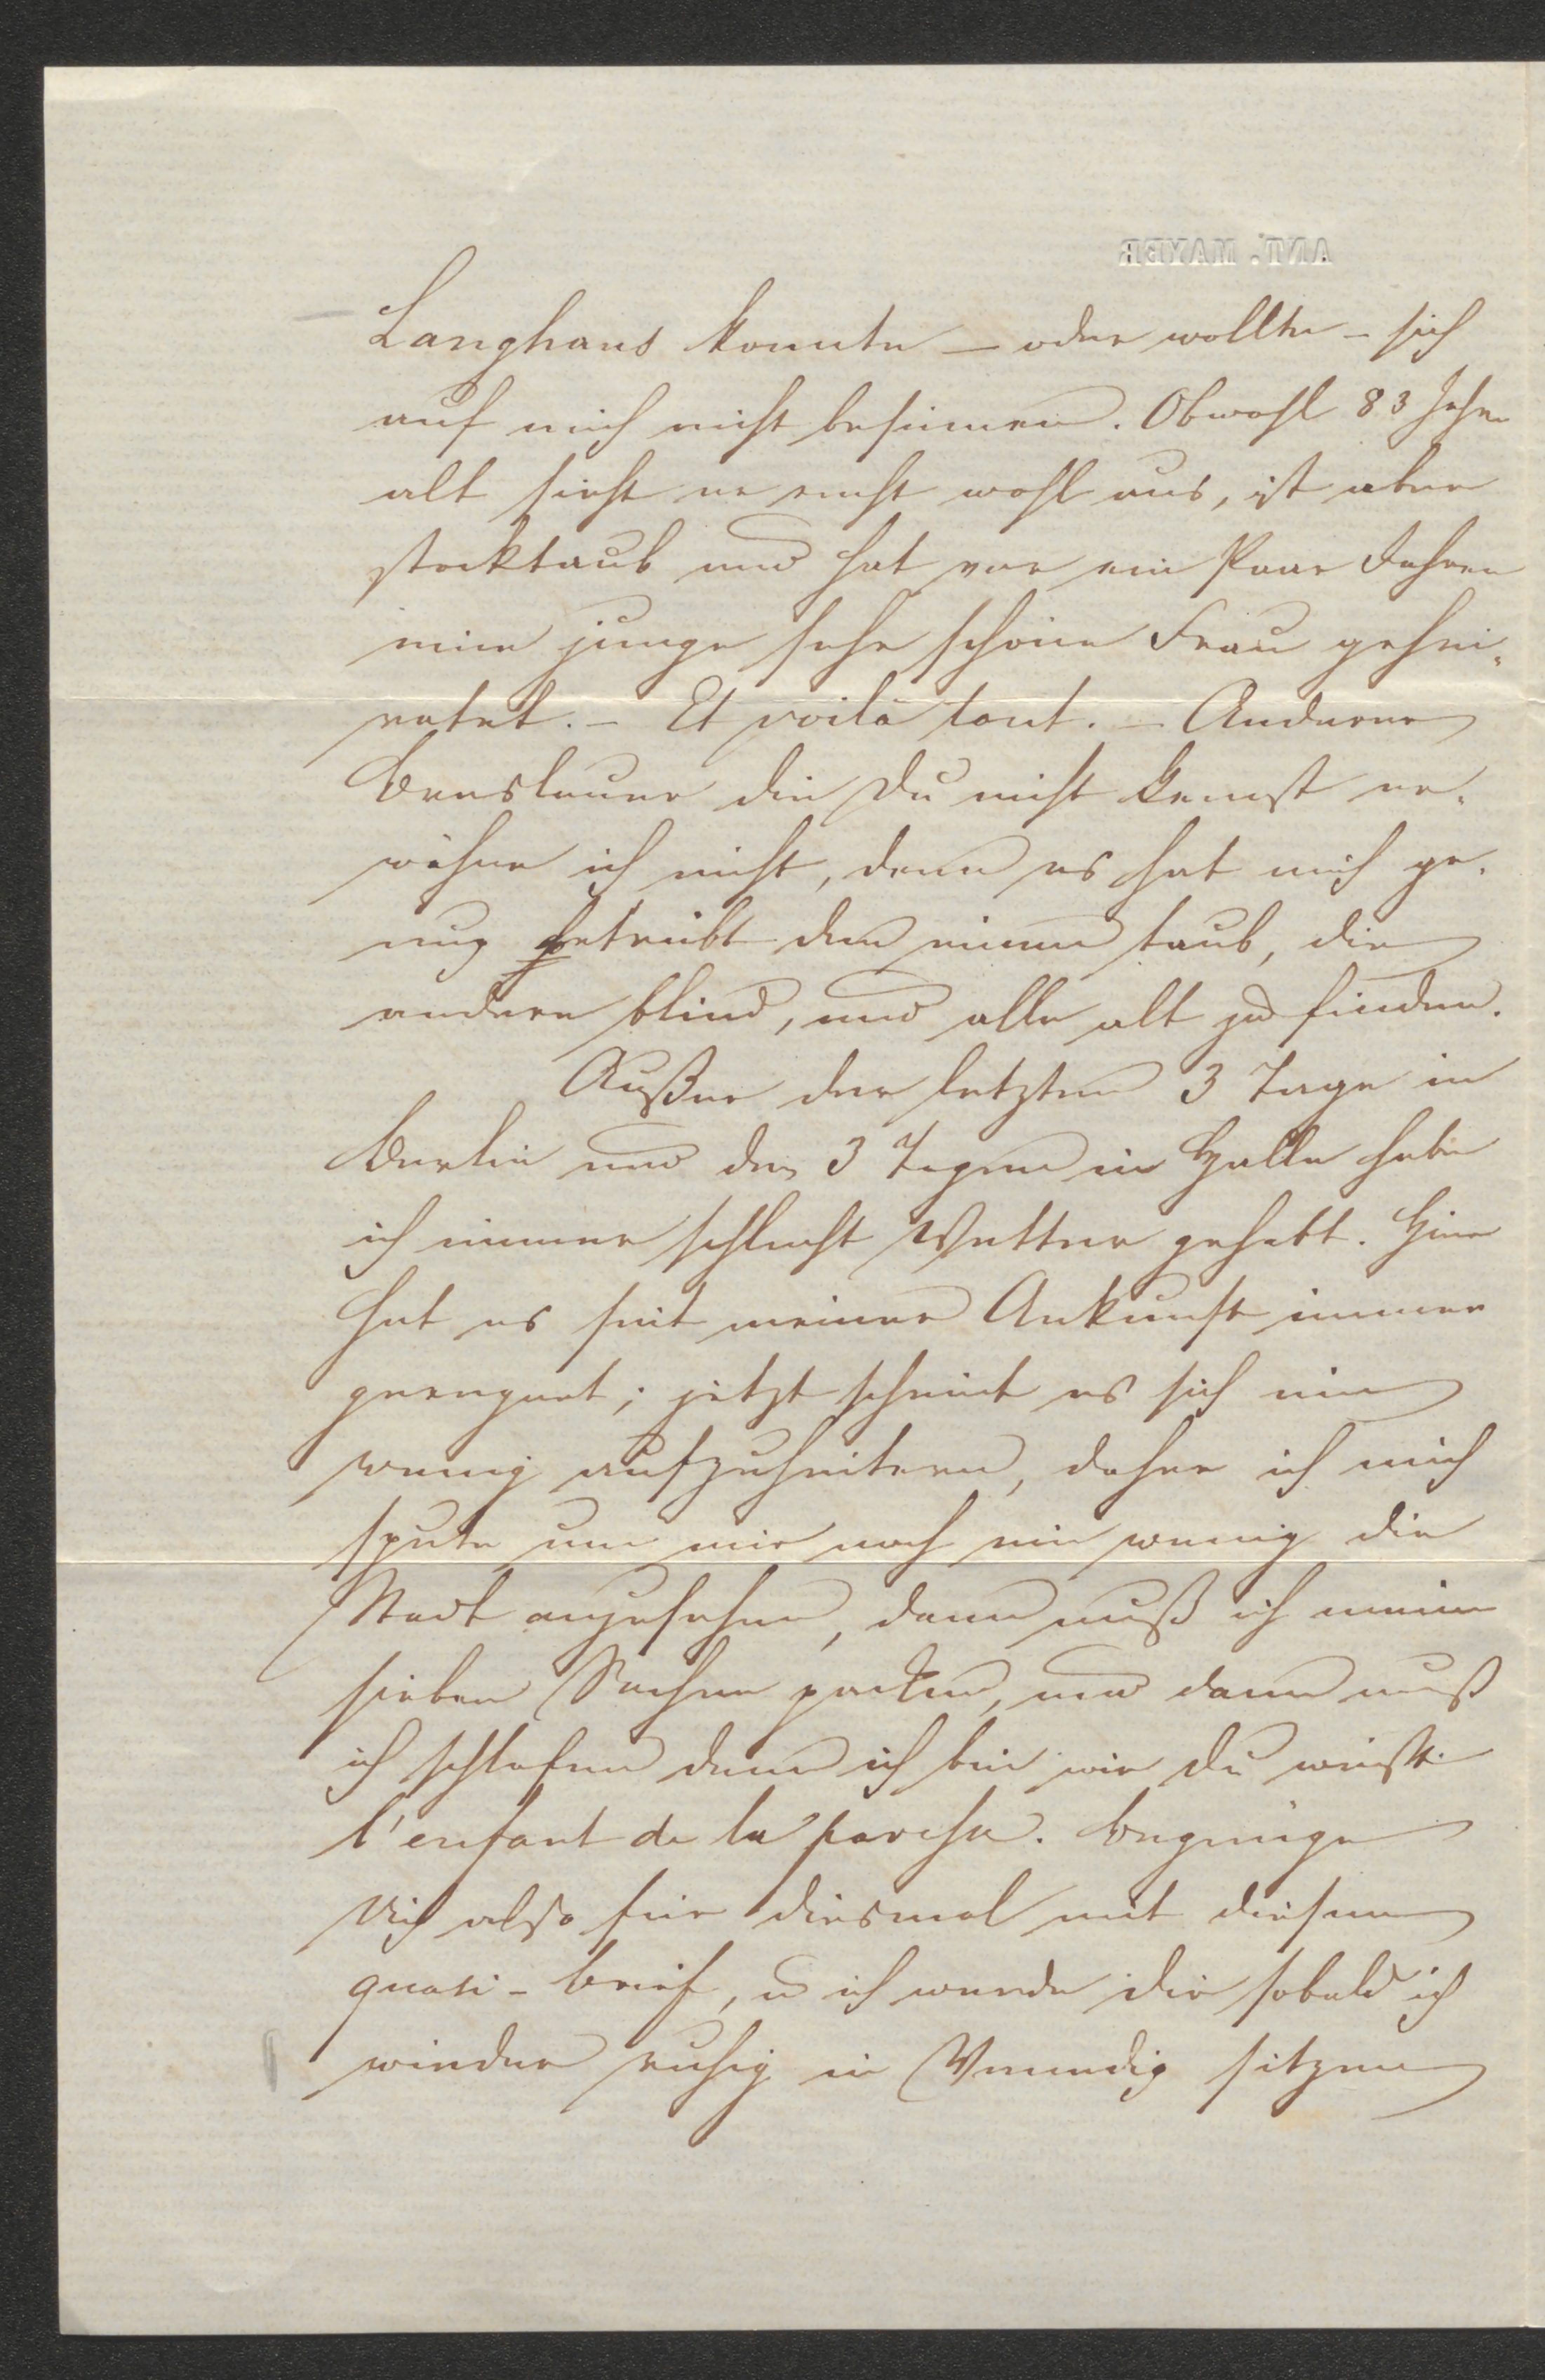 ANT. MAYER
Langhans konnte – oder wollte – sich
auf mich nicht besinnen. Obwohl 83 Jahre
alt sieht er recht wohl aus, ist aber
stocktaub und hat vor ein Paar Jahren
eine junge sehr schöne Frau gehei-
ratet. – Et voilà tout. – Anderer
Breslauer die Du nicht kennst er-
wähne ich nicht, denn es hat mich ge-
nug betrübt den einen taub, die
andere blind, und alle alt zu finden.
Außer der letzten 3 Tage in
Berlin und den 3 Tagen in Halle habe
ich immer schlecht Wetter gehabt. Hier
hat es seit meiner Ankunft immer
geregnet; jetzt scheint es sich ein
wenig aufzuheitern, daher ich mich
spute um mir noch ein wenig die
Stadt anzusehen, dann muß ich meine
sieben Sachen packen, und dann muß
ich schlafen denn ich bin wie Du weißt
l'enfant de la paresse. Begnüge
Dich also für diesmal mit diesem
quasi-Brief, u ich werde Dir sobald ich
wieder ruhig in Venedig sitzen